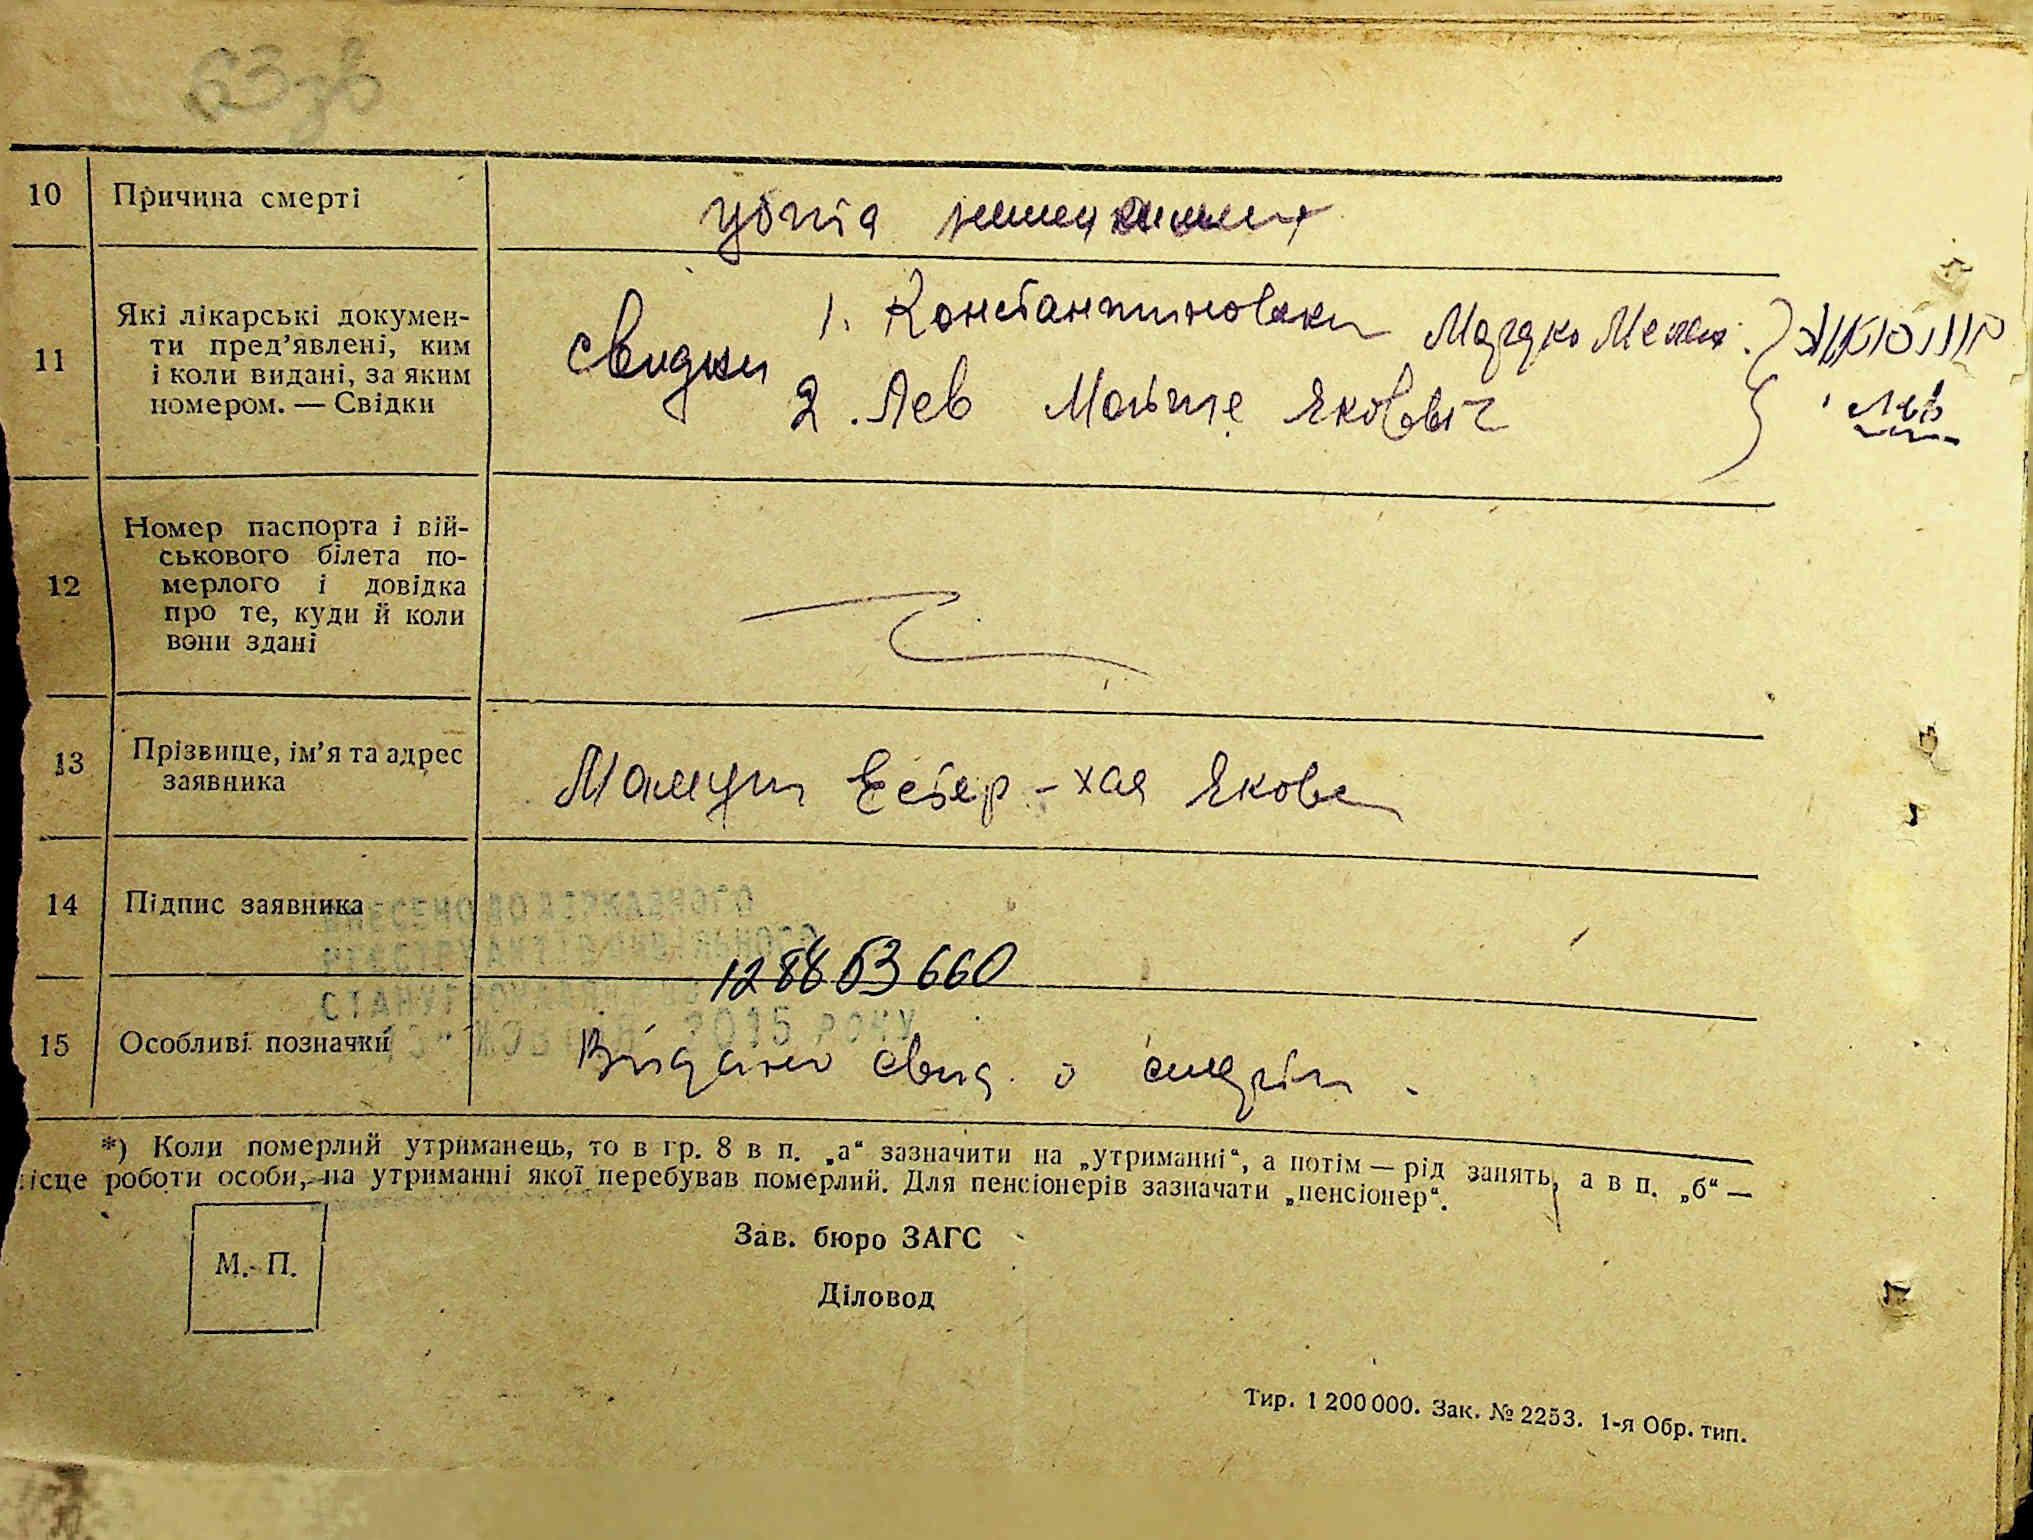 63зв
10 Причина смерті убита
11 Які лікарські докумен-
ти пред'явлені, ким
і коли видані, за яким
номером. — Свідки
свидки 1. Константиновски Мордко
2. Лев Моште Якович
Лев
12 Номер паспорта і вій-
ськового білета по-
мерлого і довідка
про те, куди й коли
вони здані
13 Прізвище, ім'я та адрес
заявника
Естер-хая Яковл
14 Підпис заявника
ВНЕСЕНО ДО ДЕРЖАВНОГО
РЕЄСТРУ АКТІВ ЦИВІЛЬНОГО
СТАНУ ГРОМАДЯН
ЖОВТНЯ 2015 РОКУ
15 Особливі позначки Видано свид. о смерти.
*) Коли померлий утриманець, то в гр. 8 в п. „а“ зазначити на „утриманні“, а потім — рід занять, а в п. „б“ —
місце роботи особи, на утриманні якої перебував померлий. Для пенсіонерів зазначати „пенсіонер“.
М. П.
Зав. бюро ЗАГС
Діловод
Тир. 1 200 000. Зак. № 2253. 1-я Обр. тип.